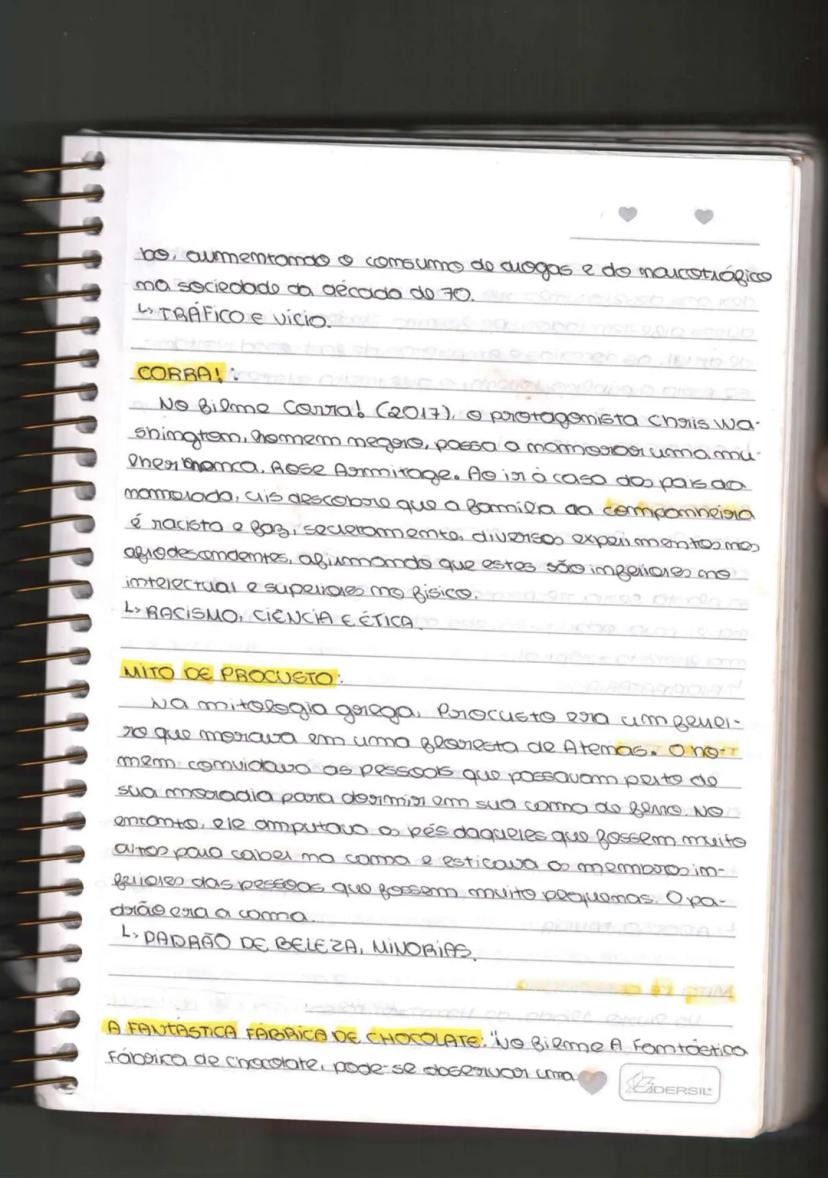 bo, aumentando o consumo de drogas e do narcotráfico
na sociedade da década de 70.
↳ TRÁFICO e vício.
CORRA!:
No filme Corra! (2017), o protagonista Chris Wa-
shington, homem negro, passa a namorar uma mu-
lher branca, Rose Armitage. Ao ir à casa dos pais da
namorada, cris descobre que a família da companheira
é racista e faz, secretamente, diversos experimentos nos
afrodescendentes, afirmando que estes são inferiores no
intelectual e superiores no físico.
↳ RACISMO, CIÊNCIA E ÉTICA.
MITO DE PROCUSTO:
Na mitologia grega, Procusto era um ferrei-
ro que morava em uma floresta de Atenas. O ho-
mem convidava as pessoas que passavam perto de
sua moradia para dormir em sua cama de ferro. No
entanto, ele amputava os pés daqueles que fossem muito
altos para caber na cama e esticava os membros in-
feriores das pessoas que fossem muito pequenas. O pa-
drão era a cama.
↳ PADRÃO DE BELEZA, MINORIAS.
A FANTÁSTICA FÁBRICA DE CHOCOLATE: "No filme A Fantástica
Fábrica de chocolate, pode-se observar uma
DERSIL